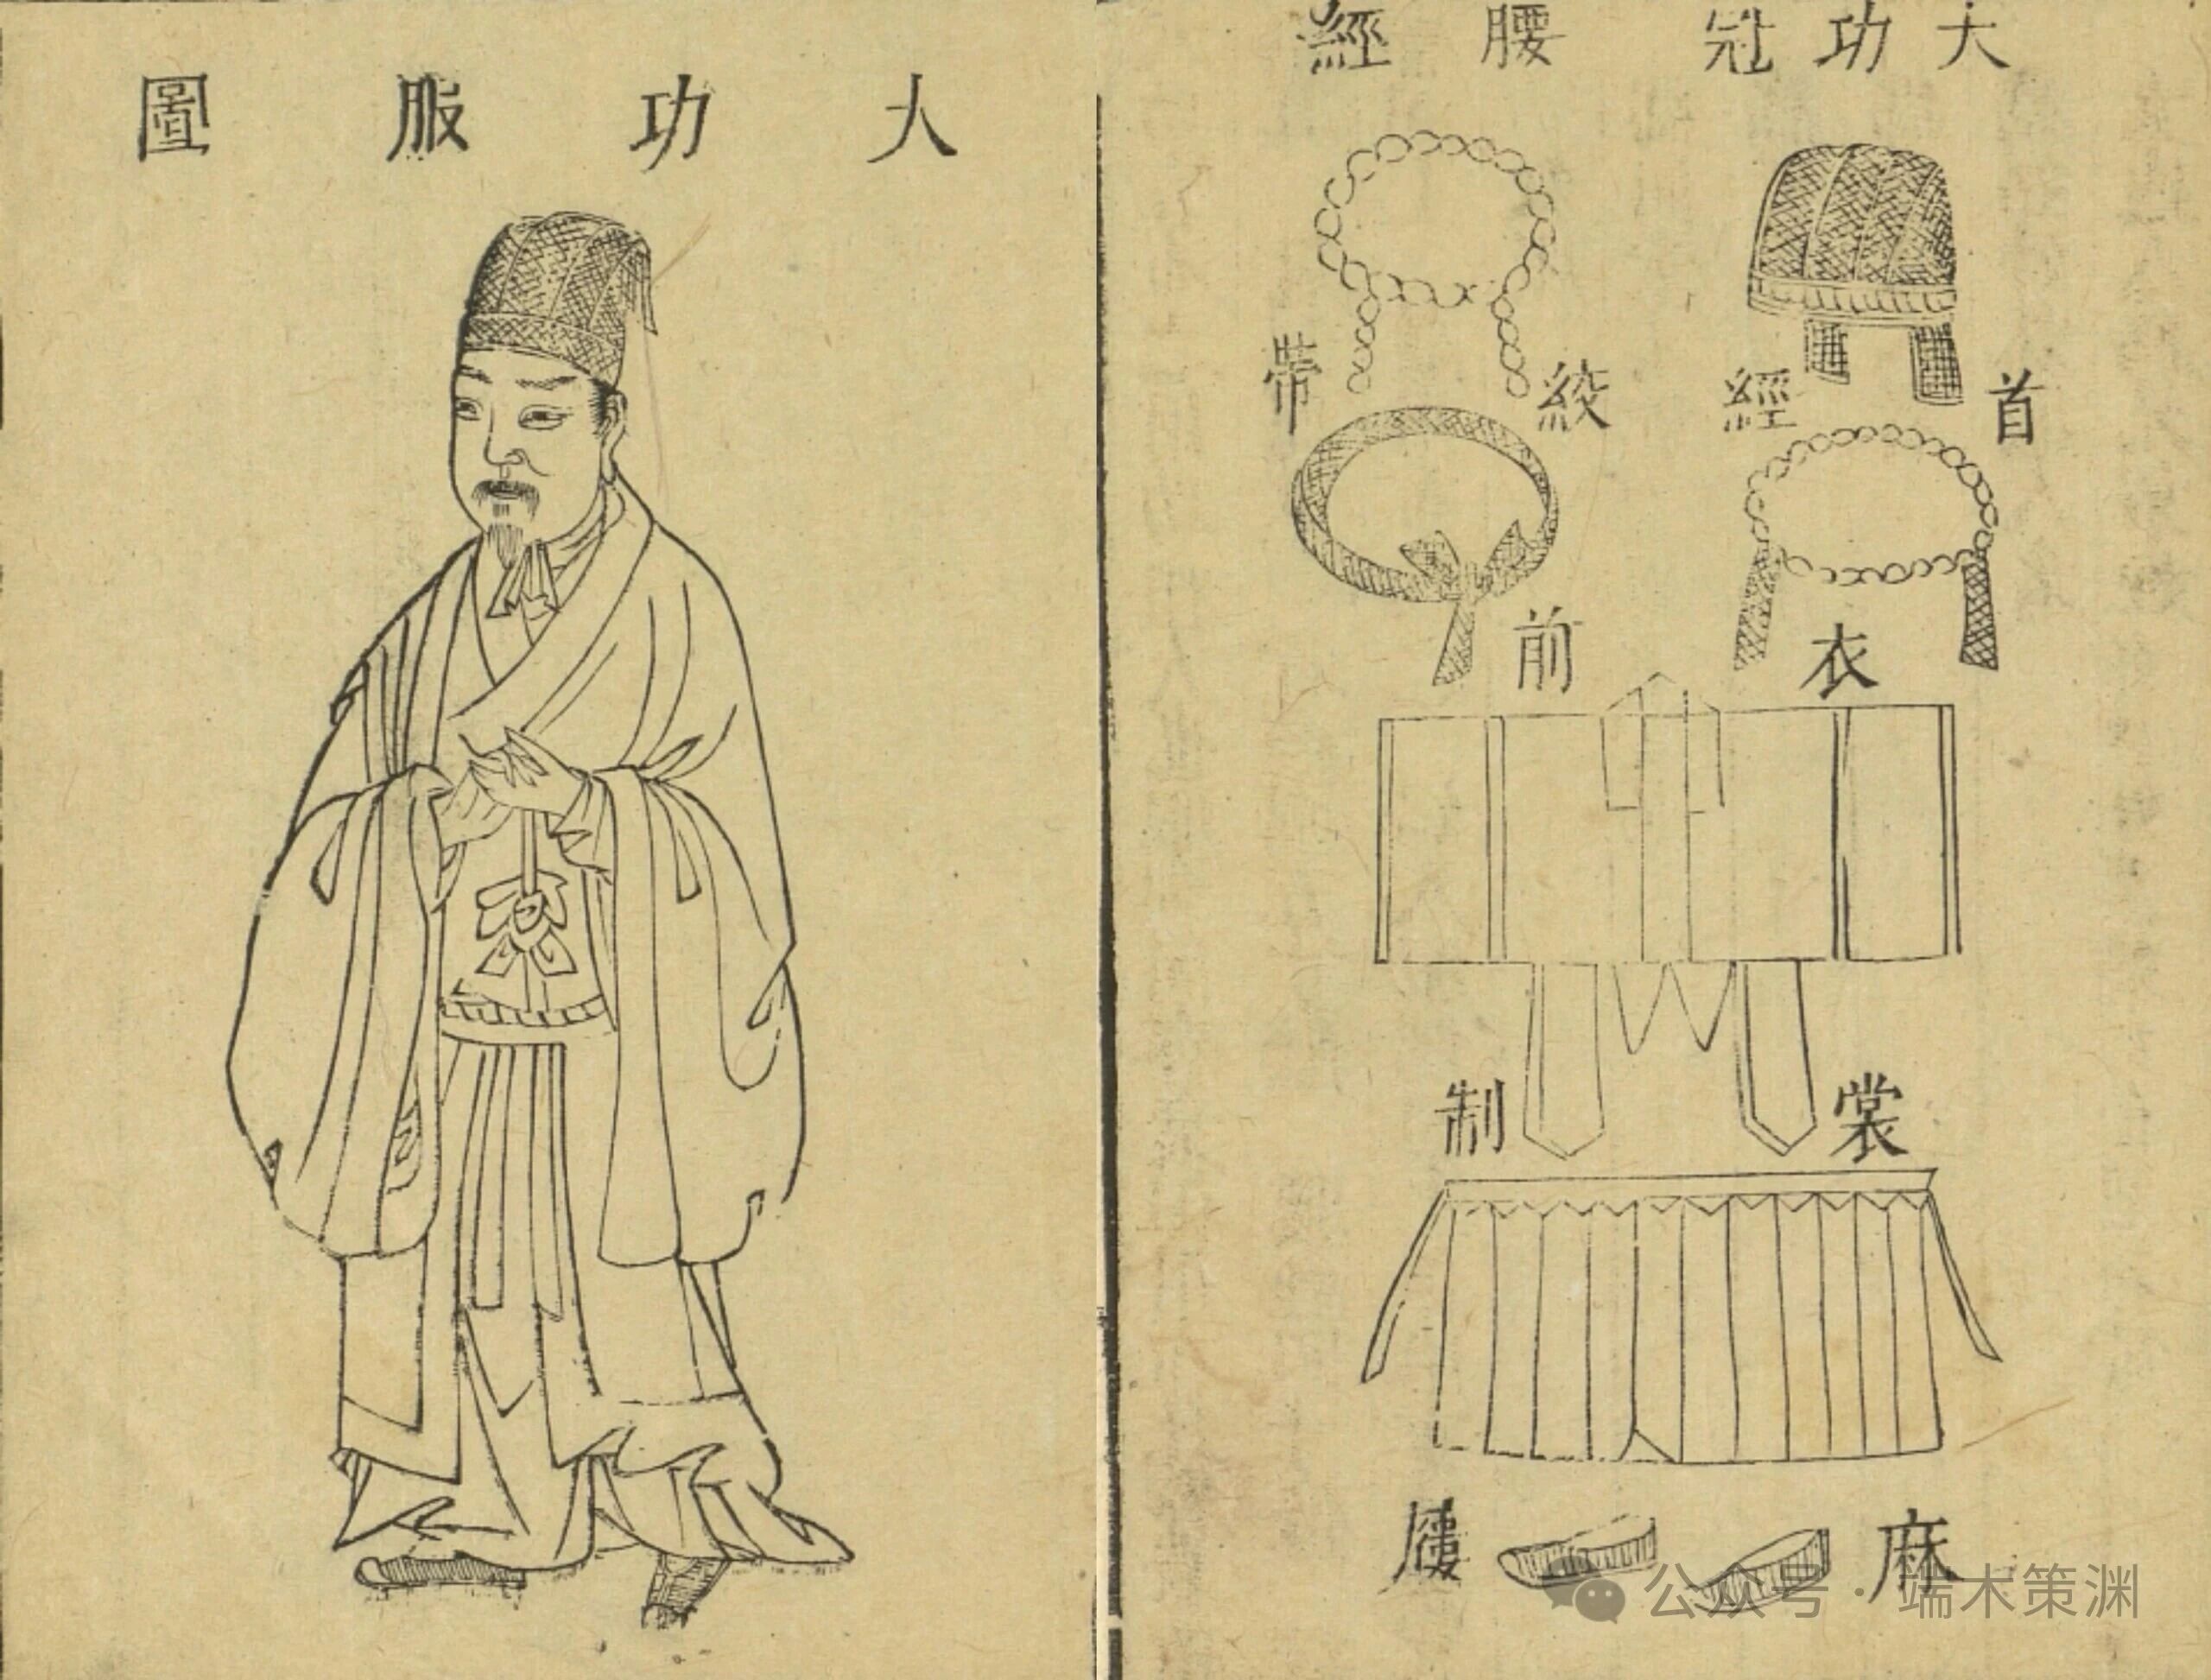 大功服圖
大功冠
腰經
首經
絞帶
衣前
裳制
麻屨
公众号 · 端木策渊